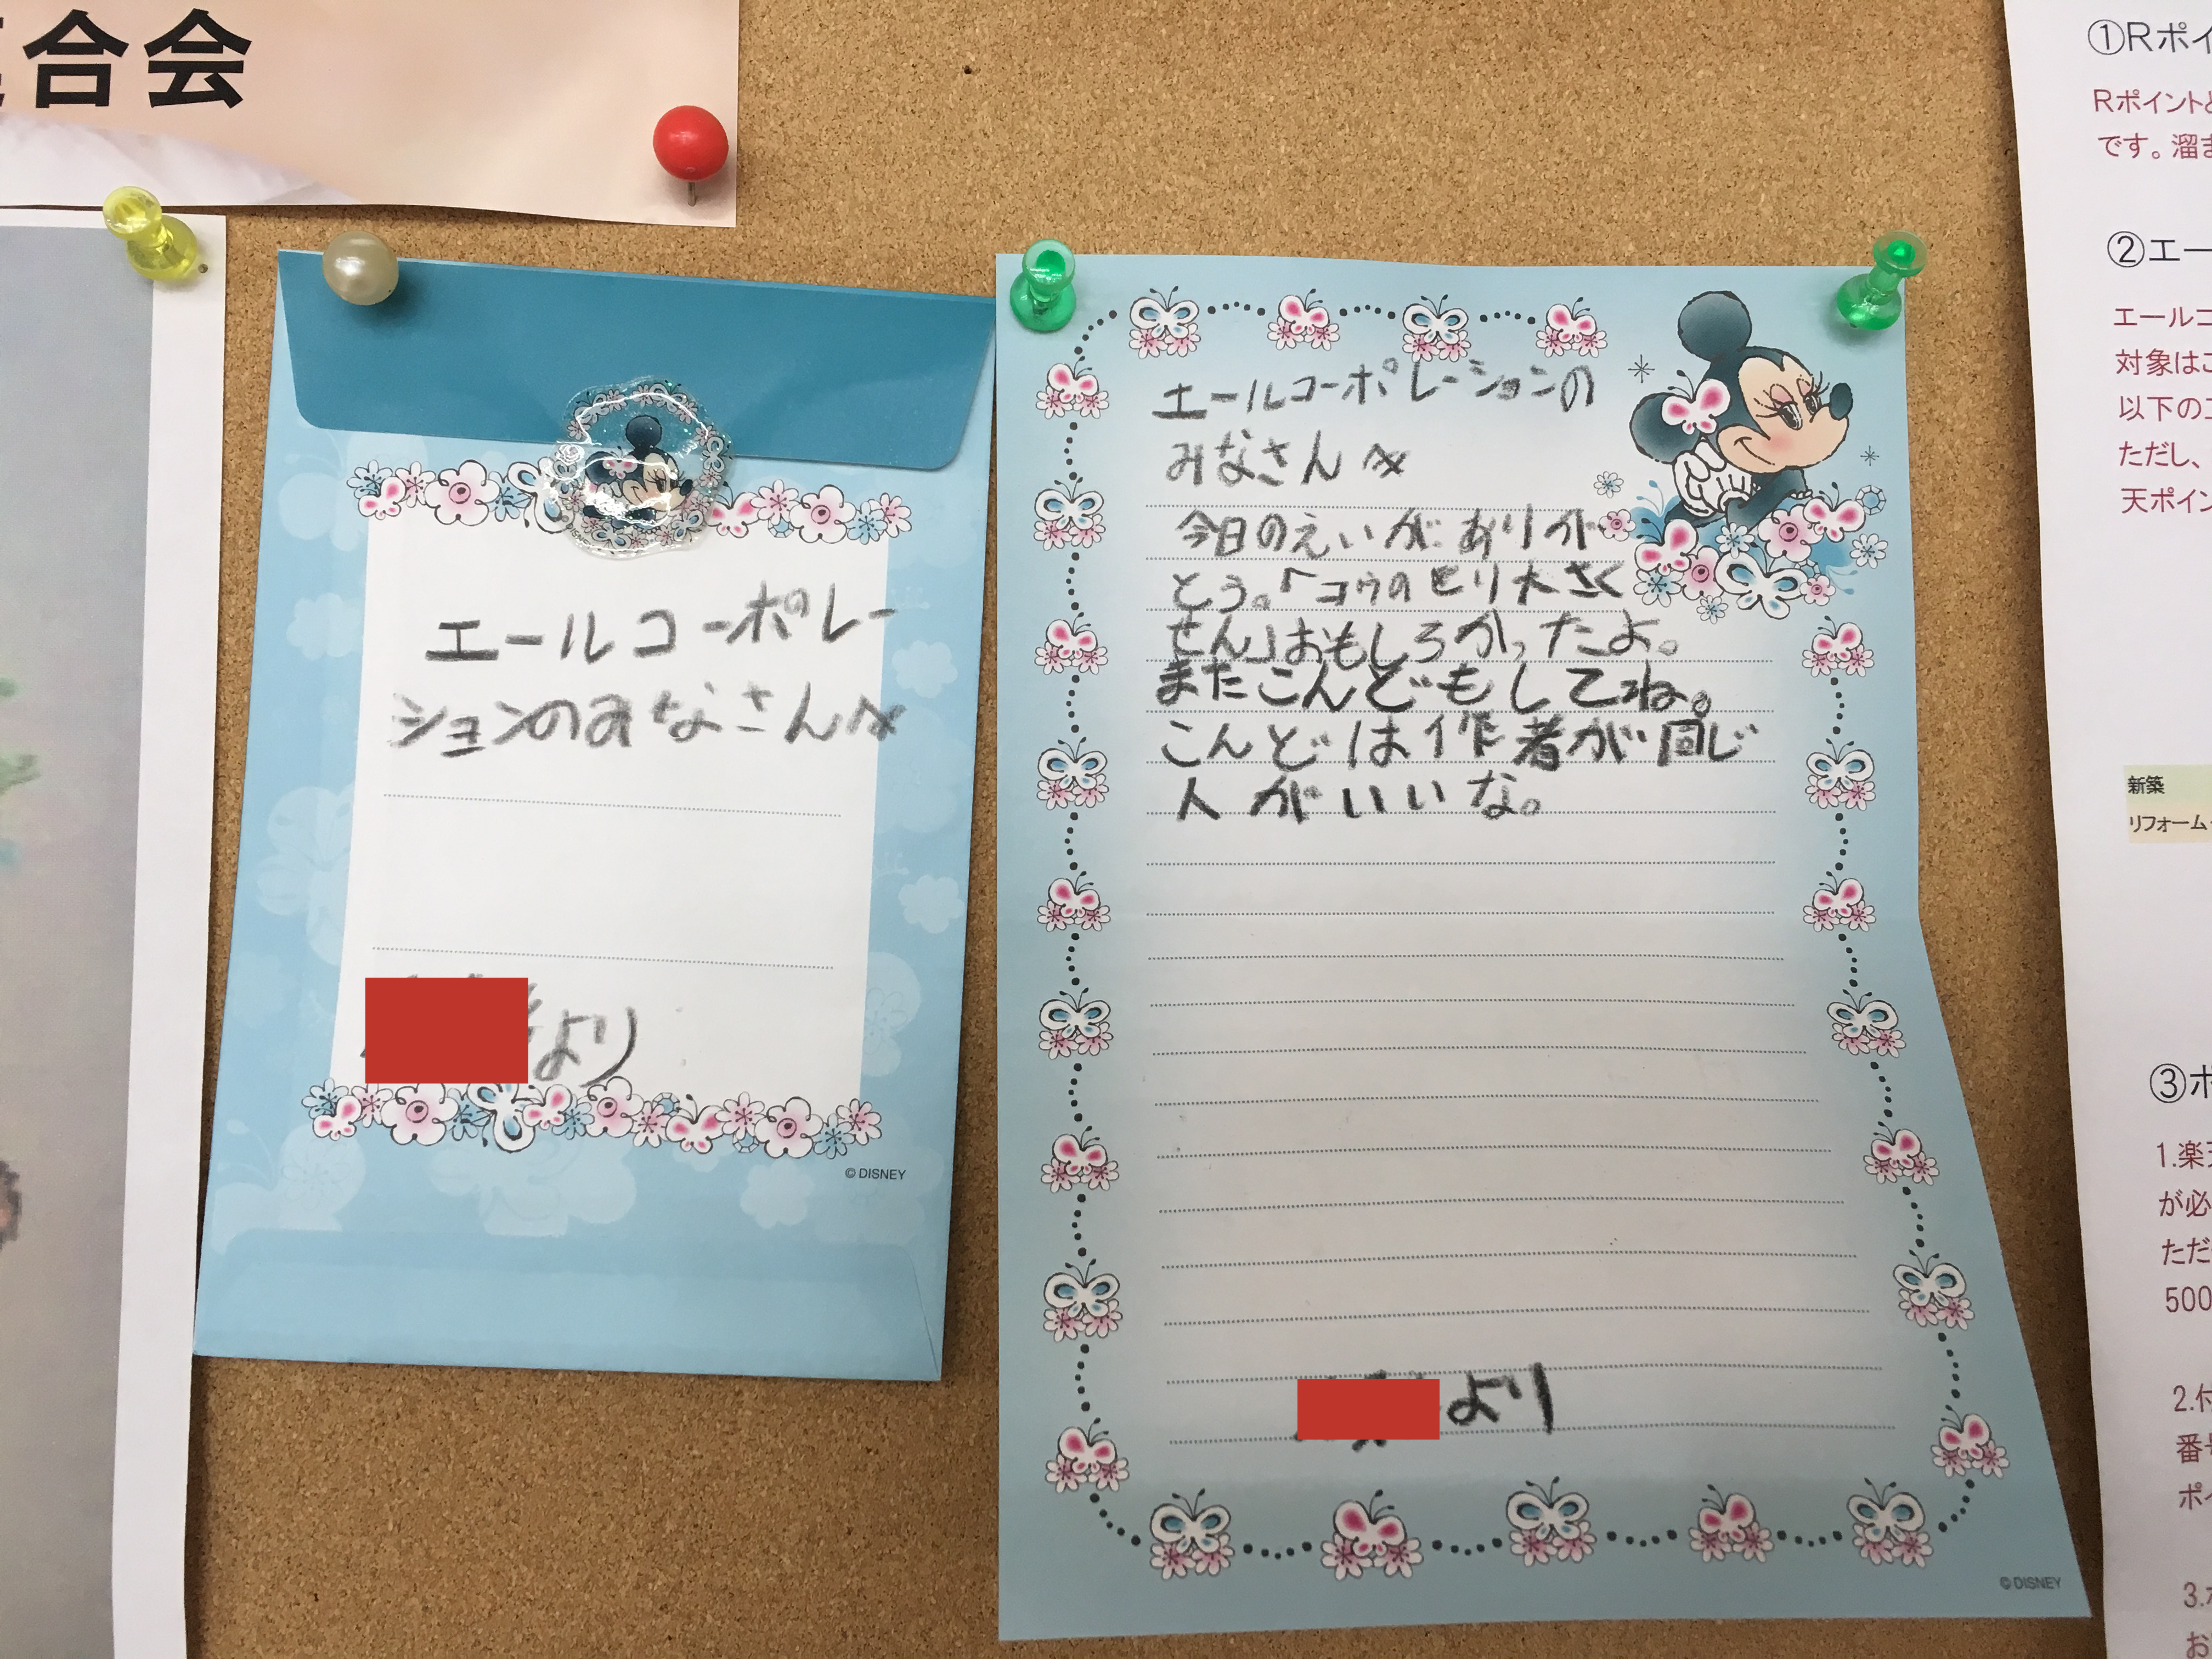 合会
エールコーポレー
ションのみなさんへ
より
© DISNEY
エールコーポレーションの
みなさんへ
今日のえいがありが
とう。「コウのとり大さく
せん」おもしろかったよ。
またこんどもしてね。
こんどは作者が同じ
人がいいな。
より
© DISNEY
①Rポイ
Rポイントと
です。溜ま
②エー
エールコ
対象はこ
以下のエ
ただし、
天ポイン
新築
リフォーム
③ポ
1.楽天
が必
ただ
500
2.付
番号
ポイ
3.ポ
お